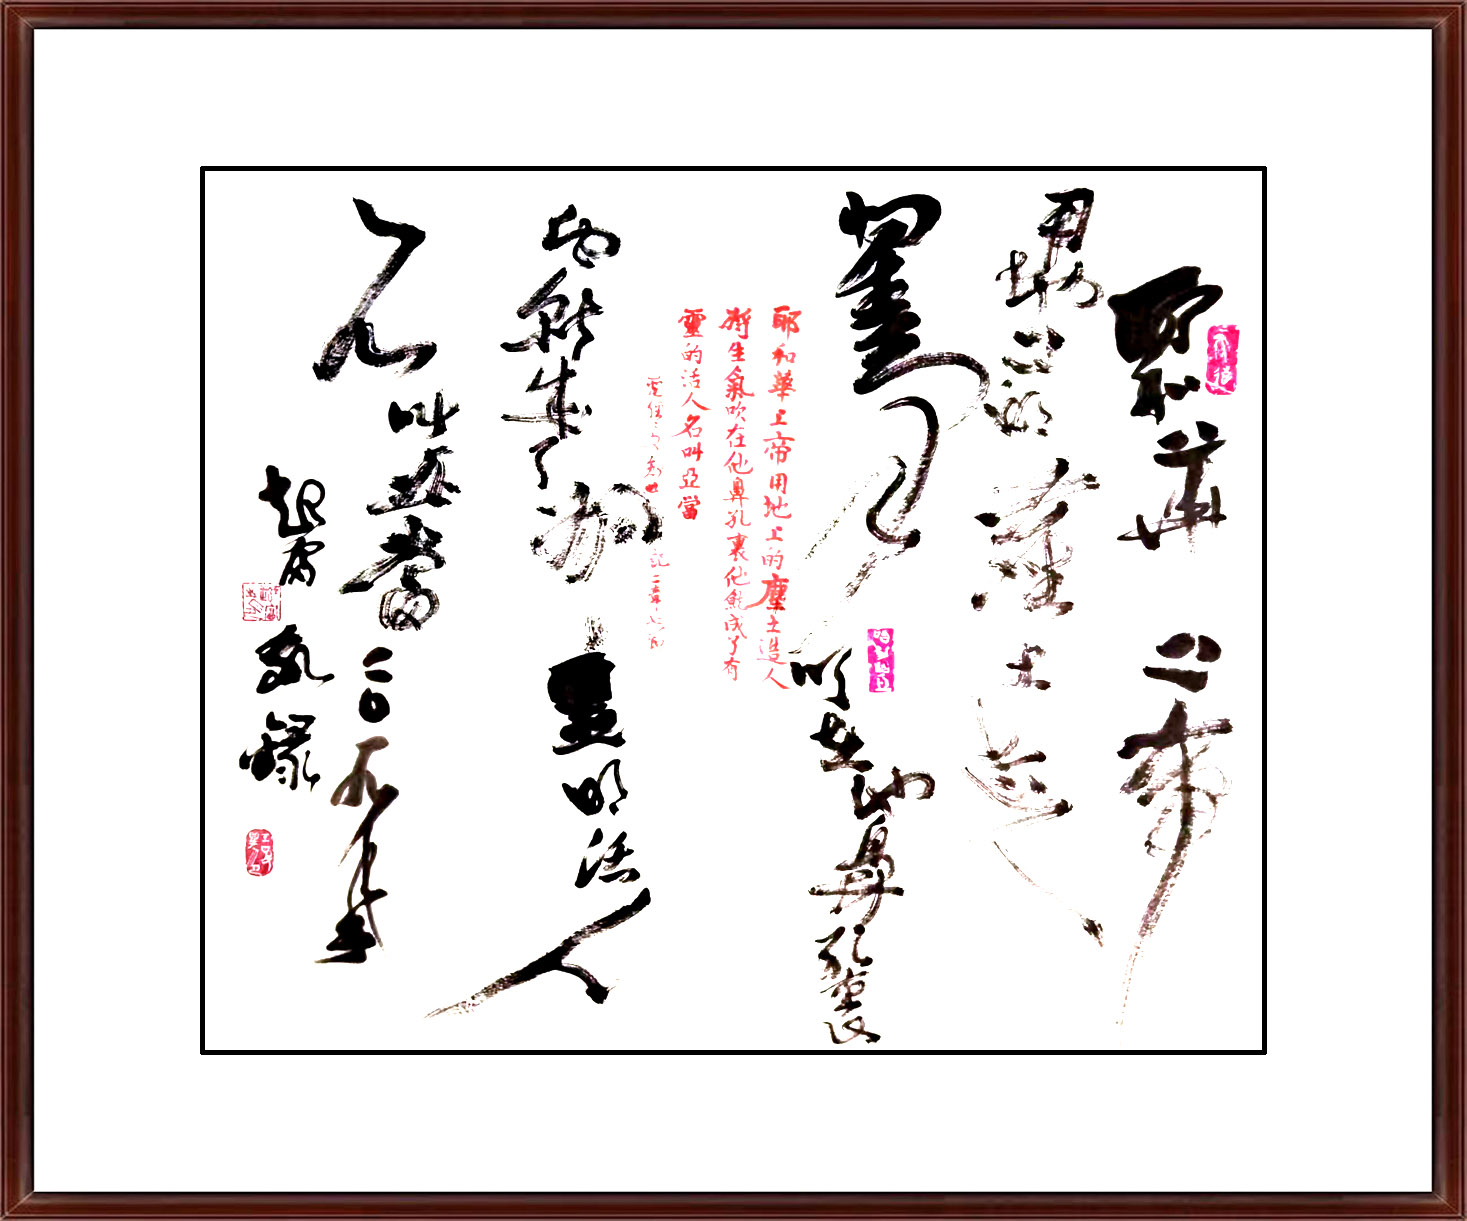 耶和華上帝
用地上的塵土造人
將生氣吹在他鼻孔裏
耶和華上帝用地上的塵土造人
將生氣吹在他鼻孔裏他就成了有
靈的活人名叫亞當
聖經之創世記二章七節
他就成了有靈的活人
名叫亞當二0一九年
敬錄